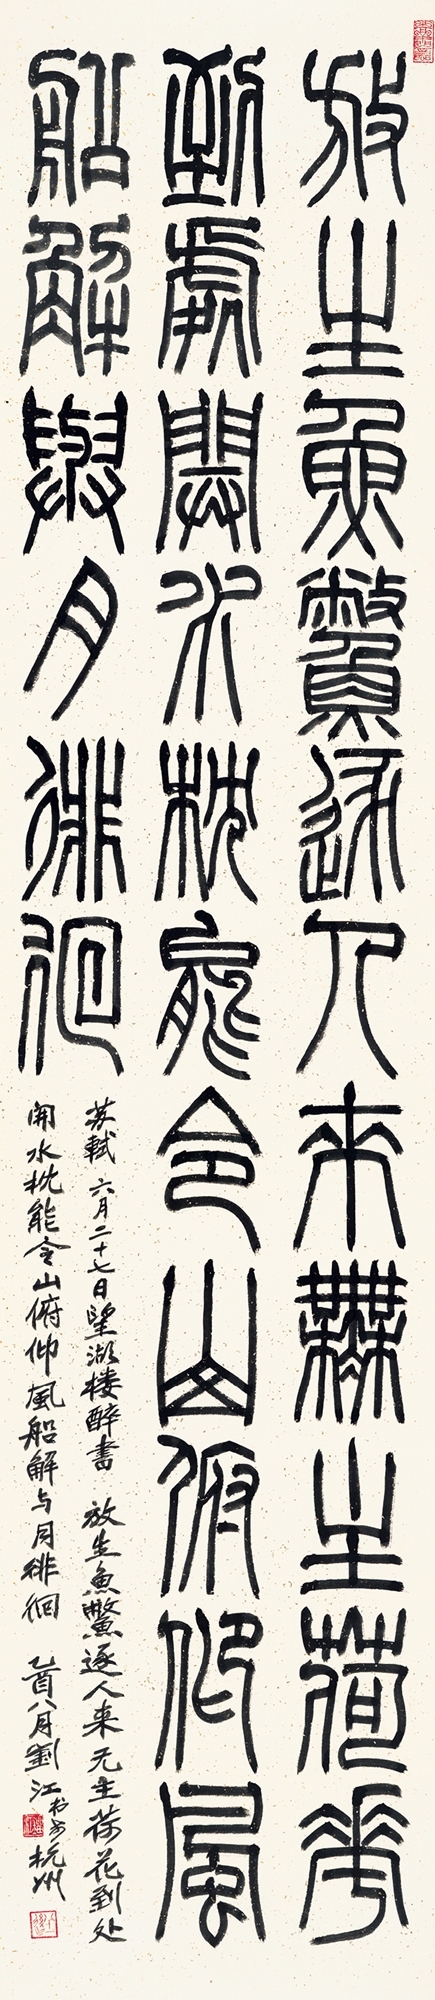 放生魚鱉逐人來無主荷花
到處開水枕能令山俯仰風
船解與月徘徊
苏軾 六月二十七日望湖楼醉書 放生魚鱉逐人来无主荷花到处
開水枕能令山俯仰風船解与月徘徊 乙酉八月劉江书于杭州